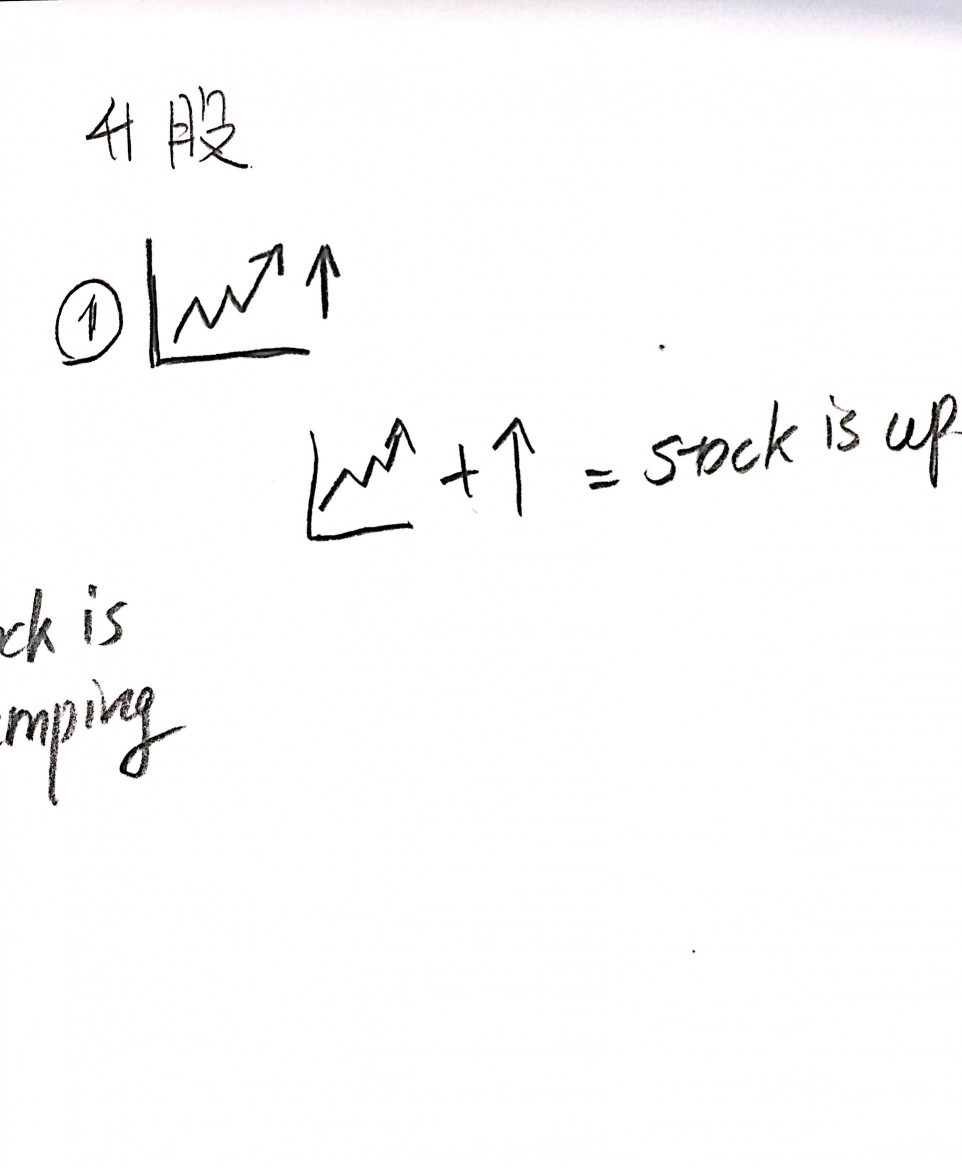 升股
① ↑
+ ↑ = stock is up
ck is
mping